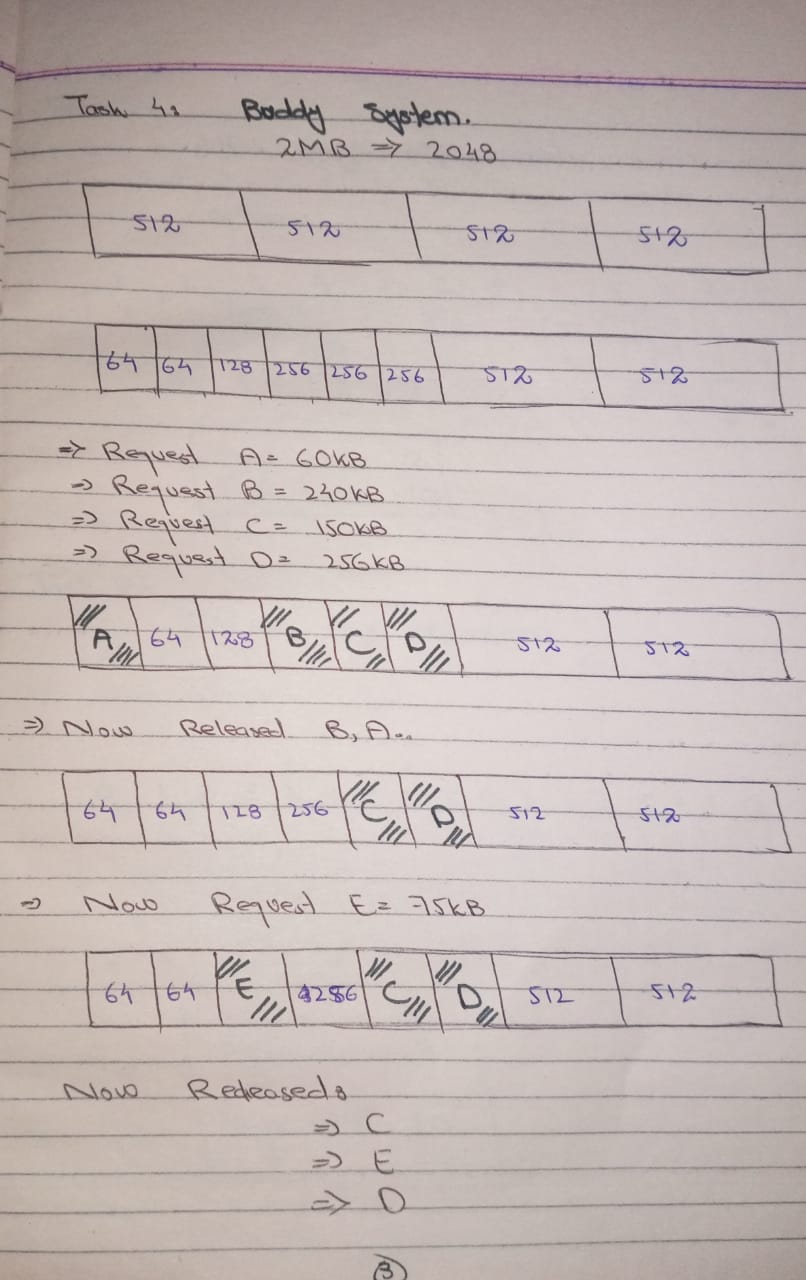 Task 4: Buddy System.
2MB ⇒ 2048
512 512 512 512
64 64 128 256 256 256 512 512
⇒ Request A = 60KB
⇒ Request B = 240KB
⇒ Request C = 150KB
⇒ Request D = 256KB
A 64 128 B C D 512 512
⇒ Now Released B, A..
64 64 128 256 C D 512 512
⇒ Now Request E = 75KB
64 64 E 256 C D 512 512
Now Released:
⇒ C
⇒ E
⇒ D
3